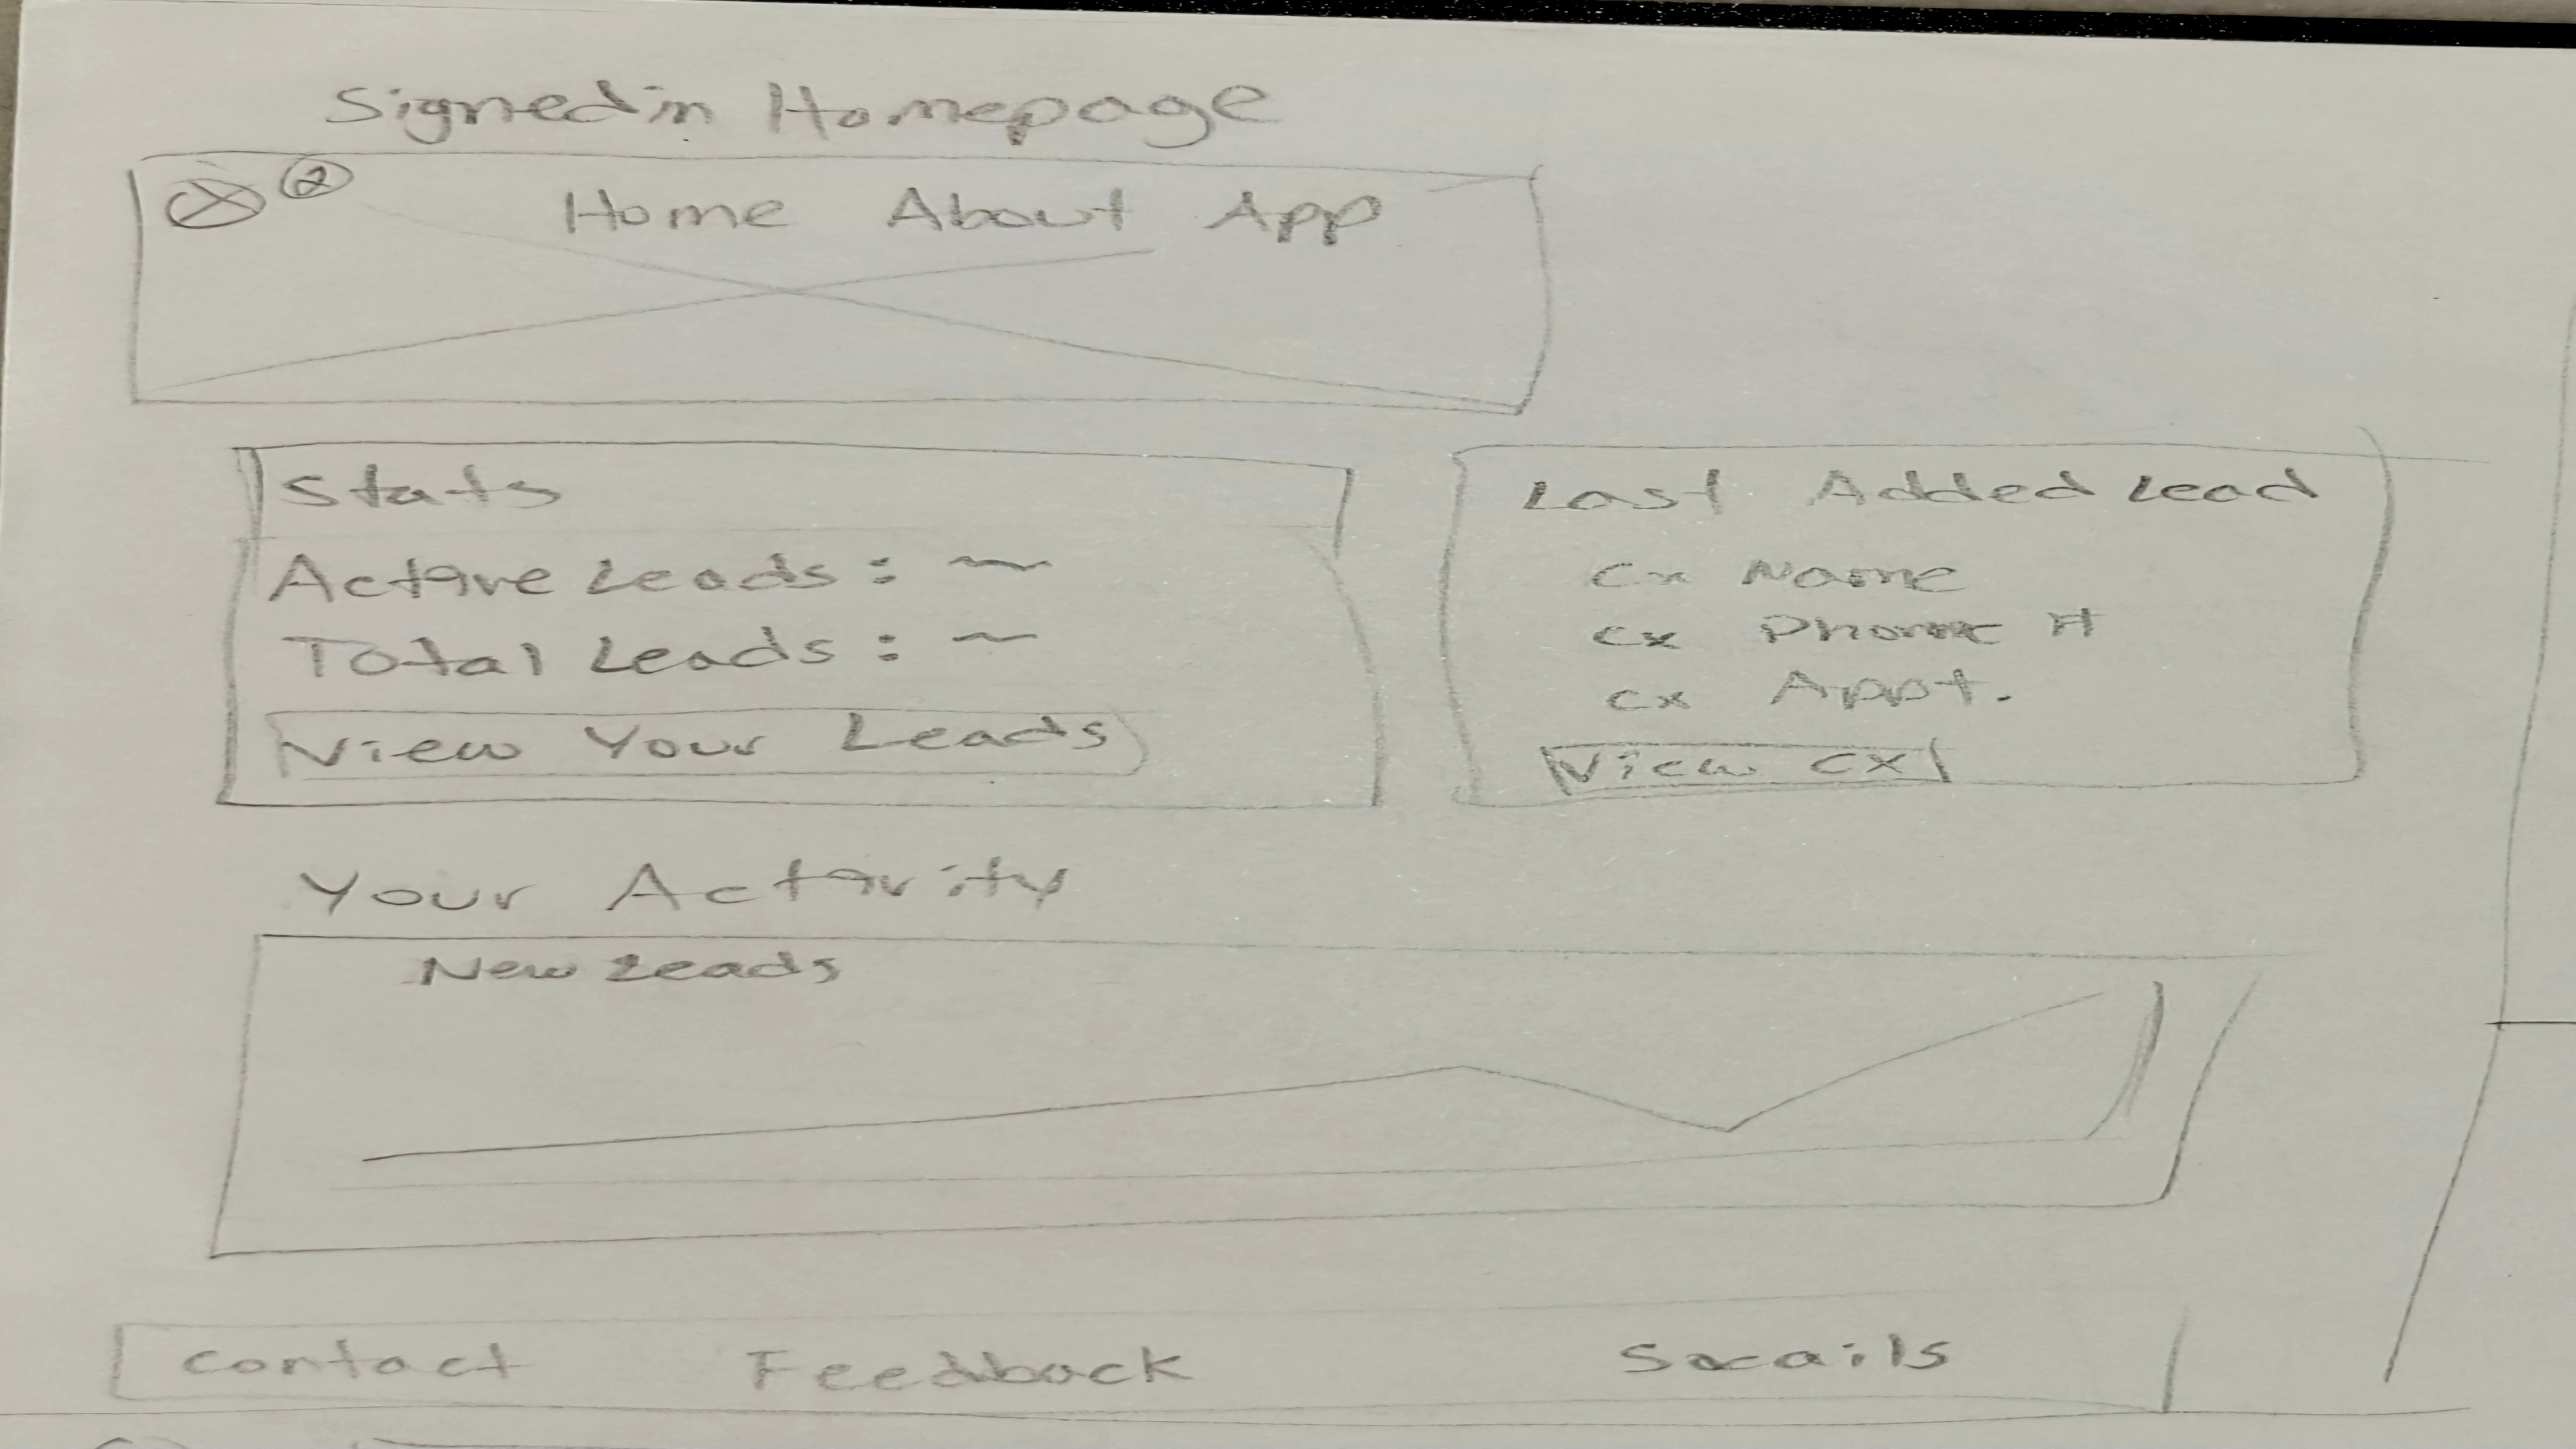 Signed in Homepage
2
Home About App
Stats
Active Leads : ~
Total Leads : ~
View Your Leads
Last Added Lead
cx Name
cx Phone #
cx Appt.
View cx
Your Activity
New Leads
Contact Feedback Socails